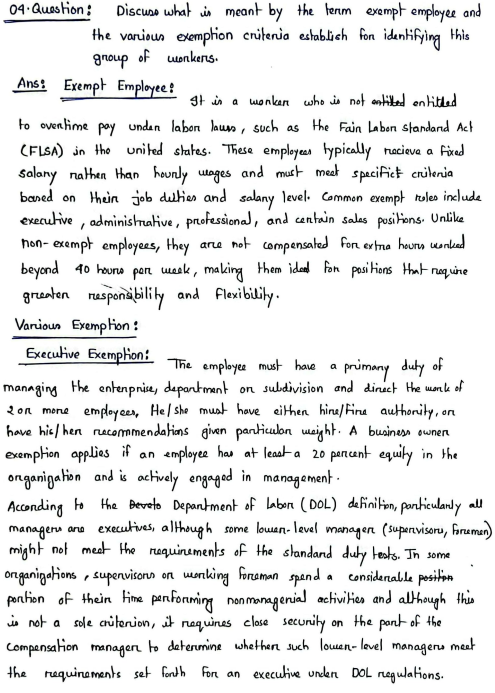 04. Question: Discuss what is meant by the term exempt employee and
the various exemption criteria establish for identifying this
group of workers.
Ans: Exempt Employee:
It is a worker who is not entitled entitled
to overtime pay under labor laws, such as the Fair Labor Standard Act
(FLSA) in the united states. These employees typically recieve a fixed
salary rather than hourly wages and must meet specifict criteria
based on their job duties and salary level. Common exempt roles include
executive, administrative, professional, and certain sales positions. Unlike
non-exempt employees, they are not compensated for extra hours worked
beyond 40 hours per week, making them ideal for positions that require
greater responsibility and flexibility.
Various Exemption:
Executive Exemption:
The employee must have a primary duty of
managing the enterprise, department or subdivision and direct the work of
2 or more employees, He/she must have either hire/fire authority, or
have his/her recommendations given particular weight. A business owner
exemption applies if an employee has at least a 20 percent equity in the
organization and is actively engaged in management.
According to the Develo Department of Labor (DOL) definition, particularly all
managers are executives, although some lower-level manager (supervisors, foremen)
might not meet the requirements of the standard duty tests. In some
organizations, supervisors or working foreman spend a considerable position
portion of their time performing nonmanagerial activities and although this
is not a sole criterion, it requires close security on the part of the
compensation manager to determine whether such lower-level managers meet
the requirements set forth for an executive under DOL regulations.